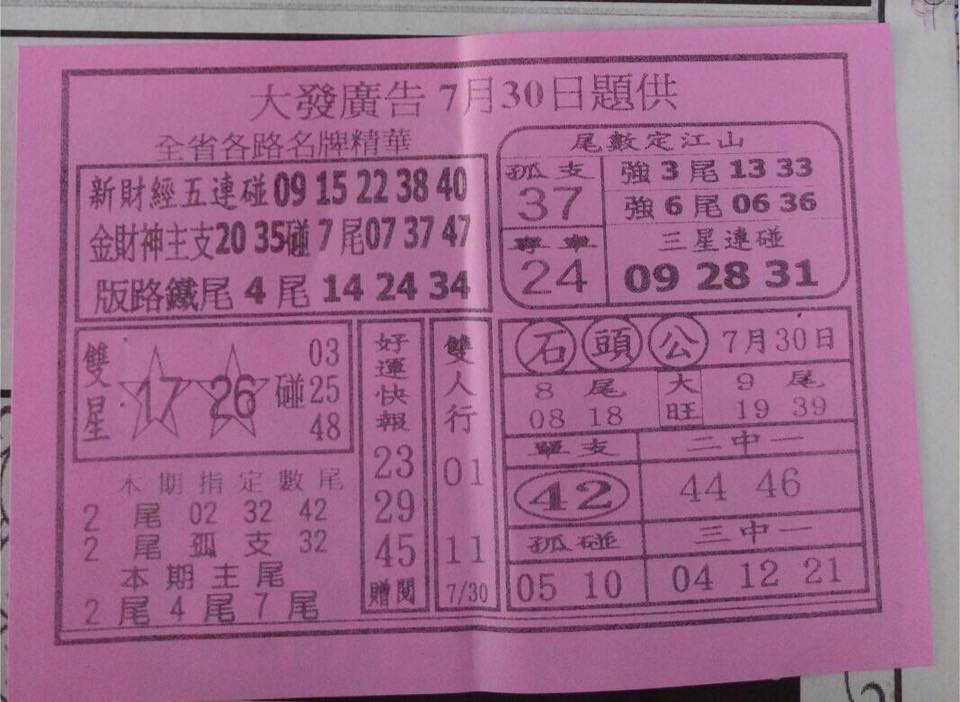 大發廣告 7月30日題供
全省各路名牌精華
新財經五連碰 09 15 22 38 40
金財神主支 20 35 碰 7 尾 07 37 47
版路鐵尾 4 尾 14 24 34
尾數定江山
孤支
37
專車
24
強 3 尾 13 33
強 6 尾 06 36
三星連碰
09 28 31
雙星
17 26 碰
03
25
48
本期指定數尾
2 尾 02 32 42
2 尾 孤支 32
本期主尾
2 尾 4 尾 7 尾
好運快報
23
29
45
贈閱
雙人行
01
11
7/30
石頭公 7月30日
8 尾
08 18
大旺
9 尾
19 39
單支
42
二中一
44 46
孤碰
05 10
三中一
04 12 21